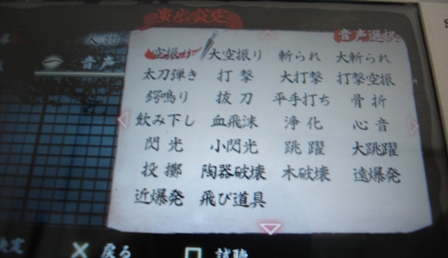 演出設定
人物
音声選択
音声
空振り 大空振り 斬られ 大斬られ
太刀弾き 打撃 大打撃 打撃空振
鍔鳴り 抜刀 平手打ち 骨折
飲み下し 血飛沫 浄化 心音
閃光 小閃光 跳躍 大跳躍
投擲 陶器破壊 木破壊 遠爆発
近爆発 飛び道具
決定 × 戻る □ 試聴